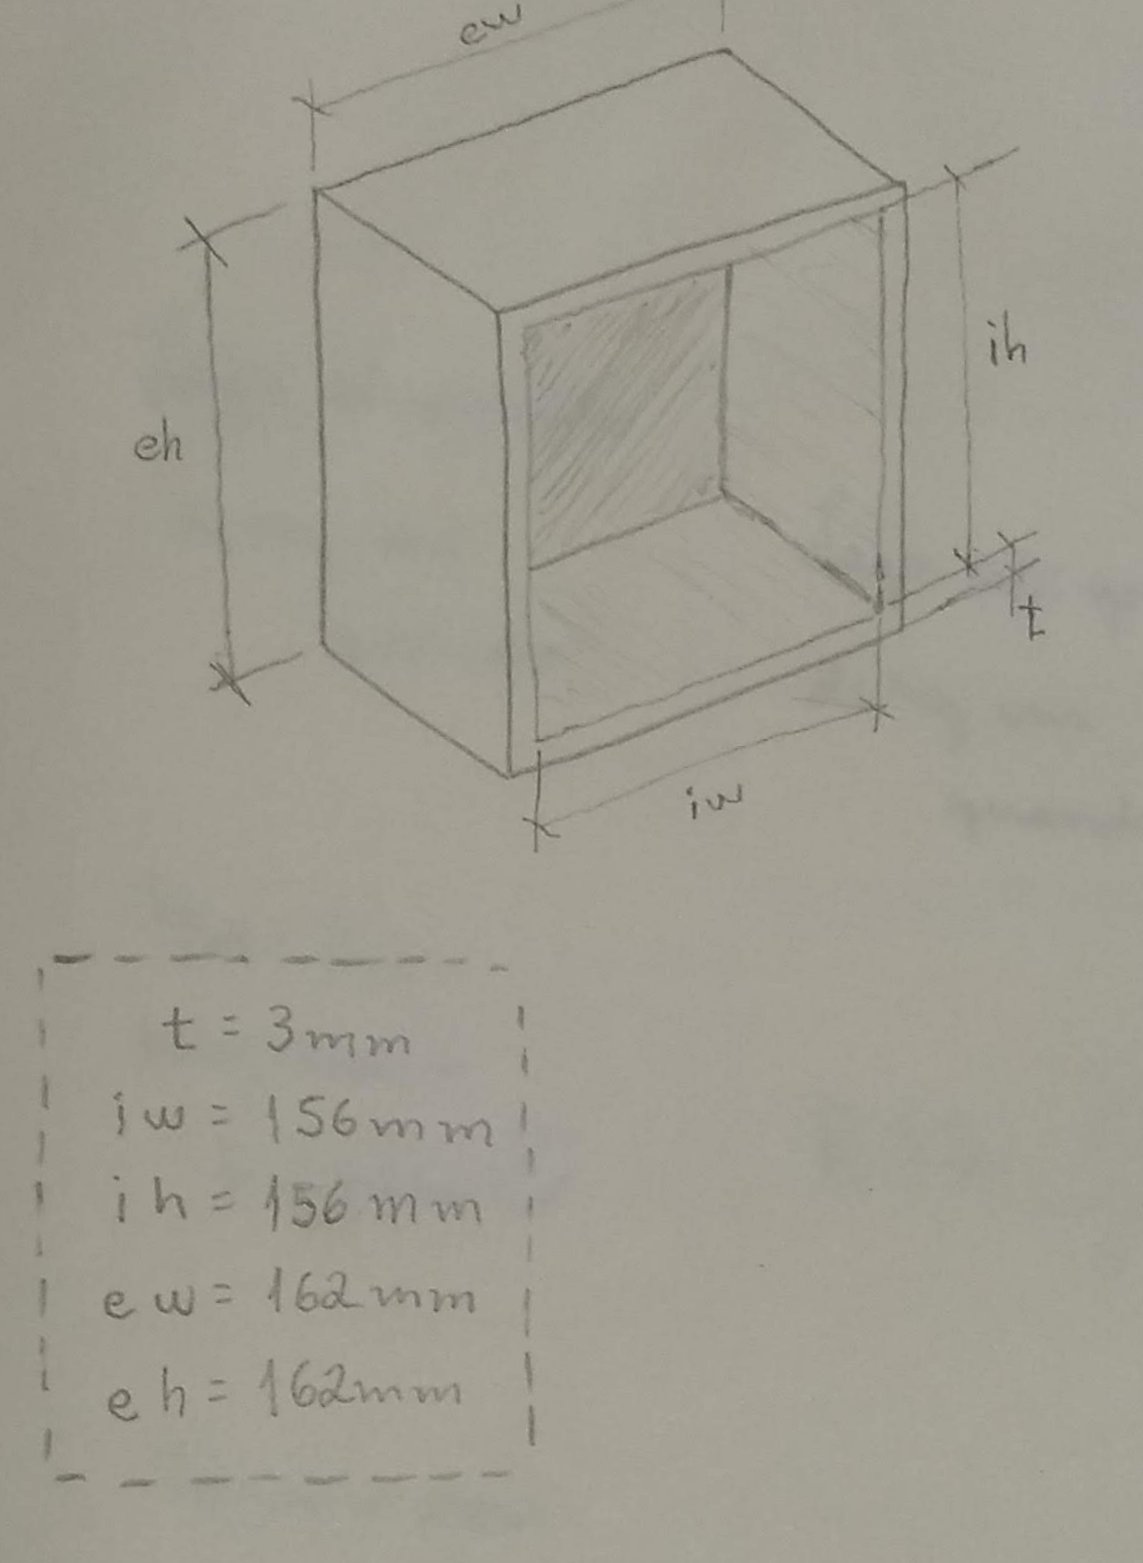 ew
ih
eh
t
iw
t = 3mm
iw = 156mm
ih = 156mm
ew = 162mm
eh = 162mm